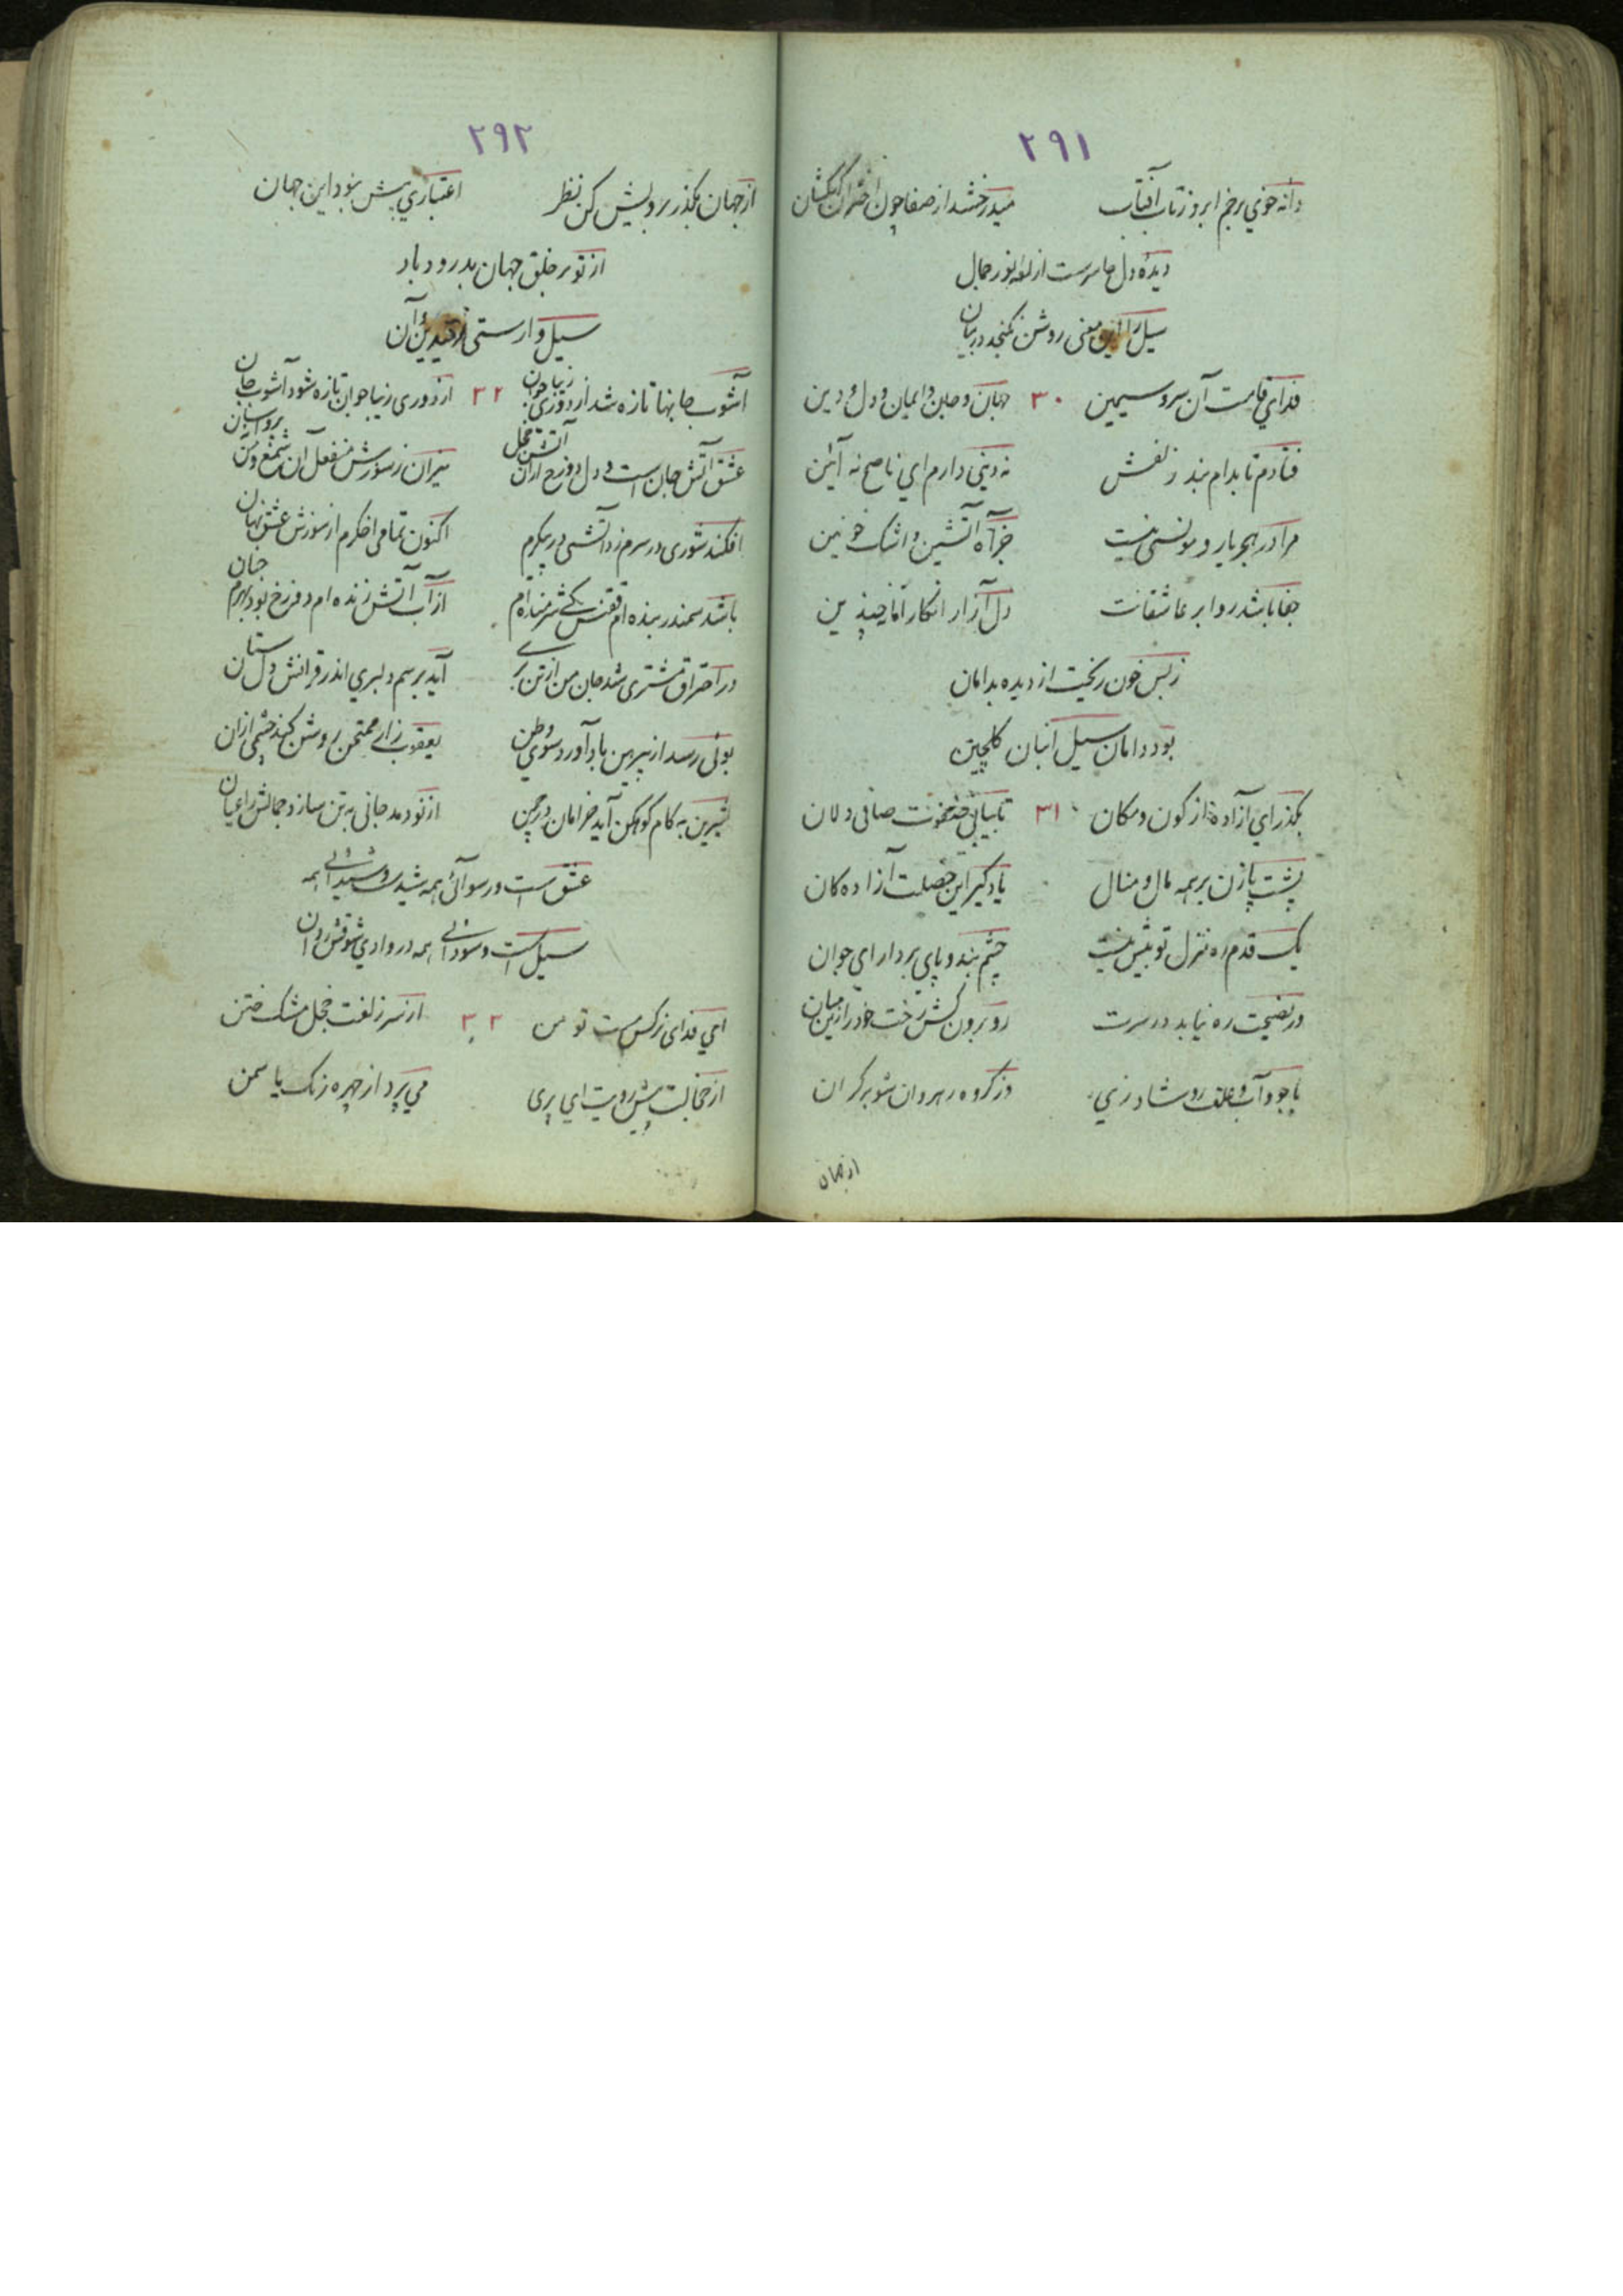 ۲۹۱
دانه خوي بر خم ابرو ز تاب آفتاب میدرخشد از صفا چون اختران کهکشان
دیدهٔ دل ما سرست از نور جمال
سیل را این معنی روشن نگنجد در بیان
فدای قامت آن سرو سیمین ۳۰ جهان و جان و ایمان و دل و دین
فتادم تا بدام بند زلفش نه دینی دارم اي ناصح نه آئین
مرا در هجر یار و مونسی نیست جز آه آتشین و اشک خونین
جفا باشد روا بر عاشقانت دل آزار انگار اما چندین
ز بس خون ریخت از دیده بدامان
بود دامان سیل انبان گلچین
بگذر اي آزاده از کون و مکان ۳۱ تا بیابی صافی دلان
پشت پا زن بر همه مال و منال یاد گیر این خصلت آزاده کان
یک قدم ره منزل تو بیش نیست چشم بند و پاي بردار اي جوان
در نصیحت ره نیابد در سرت رو برون کش رخت خود را زین میان
با جود آب و علف رو شاد زي در گروه رهروان شو بر کران
از جهان
۲۹۲
از جهان بگذر بر ویش کن نظر اعتباري بیش نبود این جهان
از تو بر خلق جهان بدرود باد
سیل وارستی از قید این و آن
آشوب جانها تازه شد از دوري زیبا جوان ۳۲ از دوری زیبا جوان تازه شود آشوب جان
عشق آتش جان است و دل دوزخ از آن آتش خجل نیران ز سوزش منفعل آن شمع
افکند شوری در سرم زد آتشی در پیکرم اکنون تمامی اخگرم از سوزش عشق نهان
باشد سمندر بنده ام ققنس شرمنده ام از آب آتش زنده ام دوزخ بود بهرم جنان
در احتراق مشتری شد جان من از تن بری آید برسم دلبري اندر قرانش دل ستان
بوئی رسد از پیرهن باد آورد سوي وطن یعقوب زار ممتحن روشن کند چشمی از آن
شیرین به کام کوهکن آید خرامان در چمن از نو دمد جانی به تن سازد جمالش را عیان
عشق است و رسوائی همه شیدائی همه
سیل است و سودائی همه در وادي شوقش روان
اي فدای نرگس مست تو من ۳۳ از سر زلفت خجل مشک ختن
از خجالت پیش رویت اي پری می پرد از چهره رنگ یاسمن